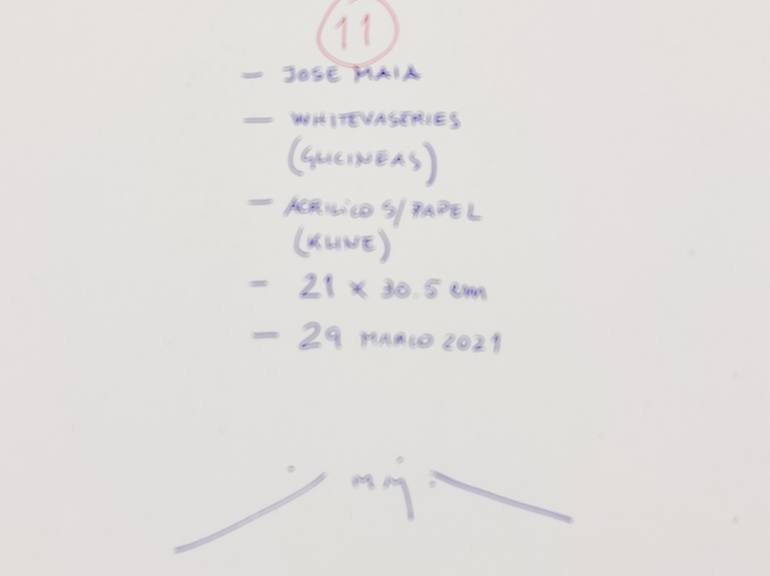 11
- JOSE MAIA
- WHITEVASERIES
(GLICINEAS)
- ACRILICO S/ PAPEL
(KLINE)
- 21 x 30.5 cm
- 29 MARCO 2021